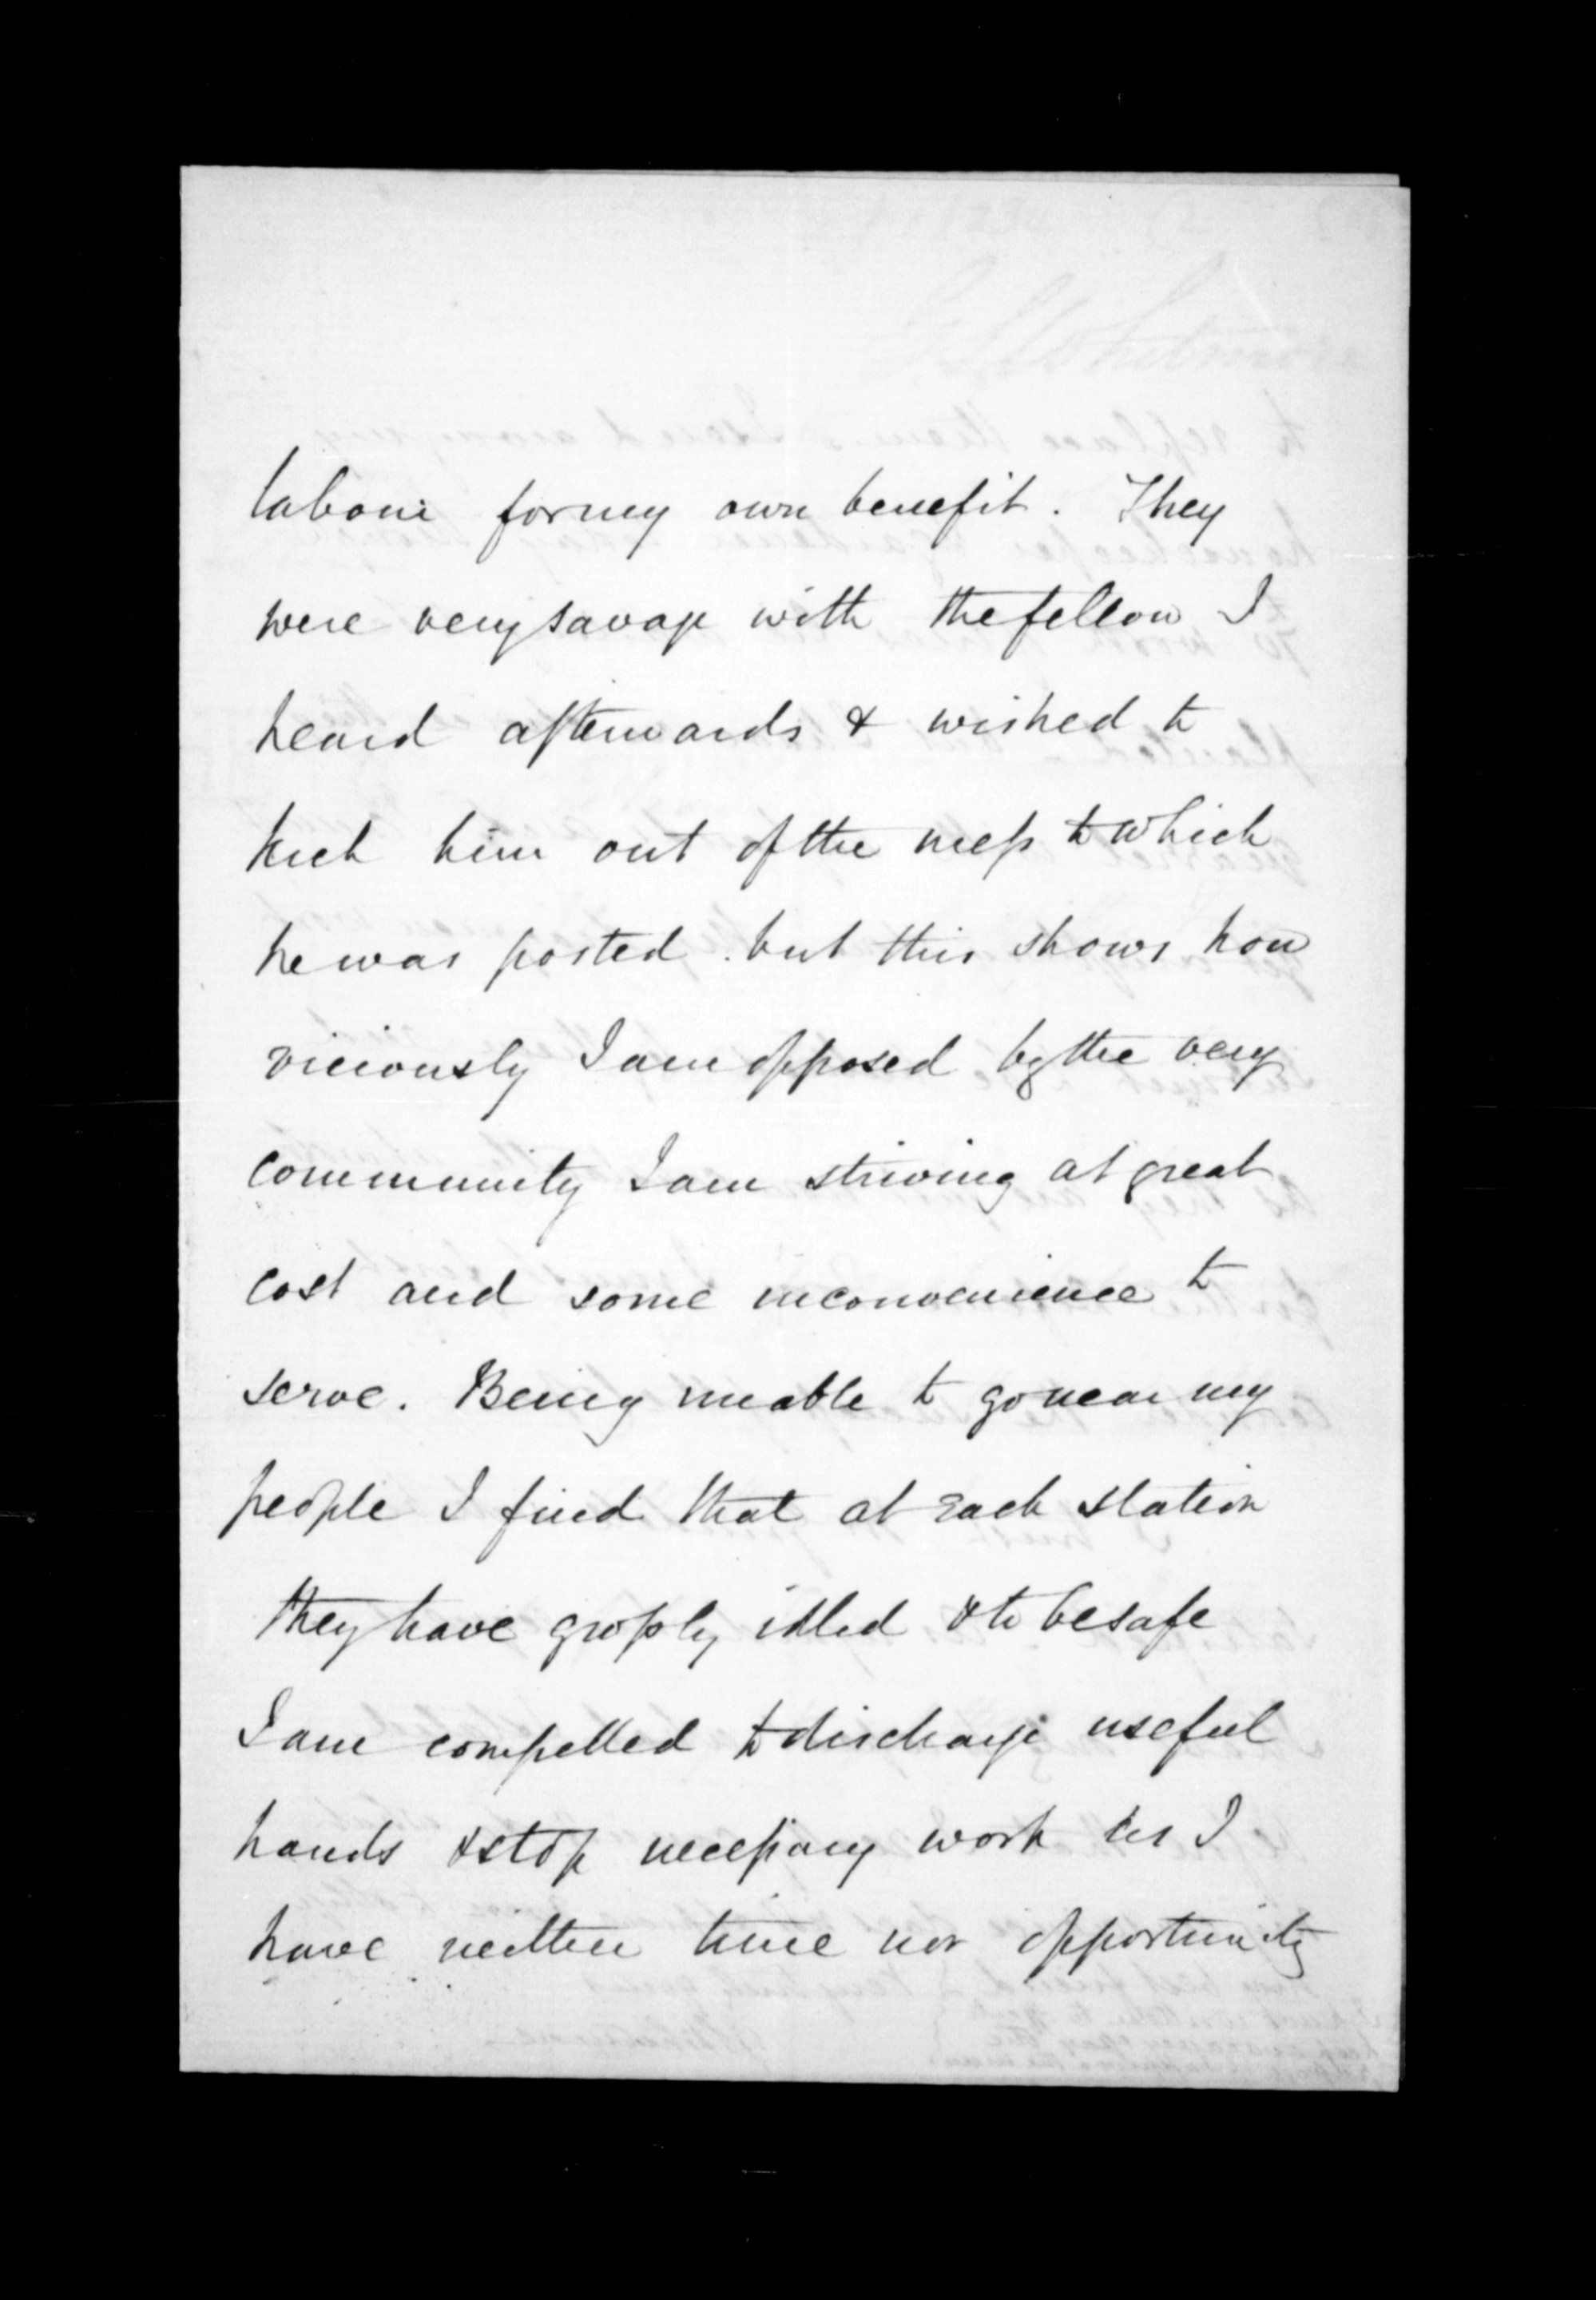 labour for my own benefit. They
were very savage with the fellow I
heard afterwards & wished to
kick him out of the mess to which
he was posted. but this shows how
viciously I am opposed by the very
community I am striving at great
cost and some inconvenience to
serve. Being unable to go near my
people I find that at each station
they have grossly idled & to be safe
I am compelled to discharge useful
hands & stop necessary work as I
have neither time nor opportunity